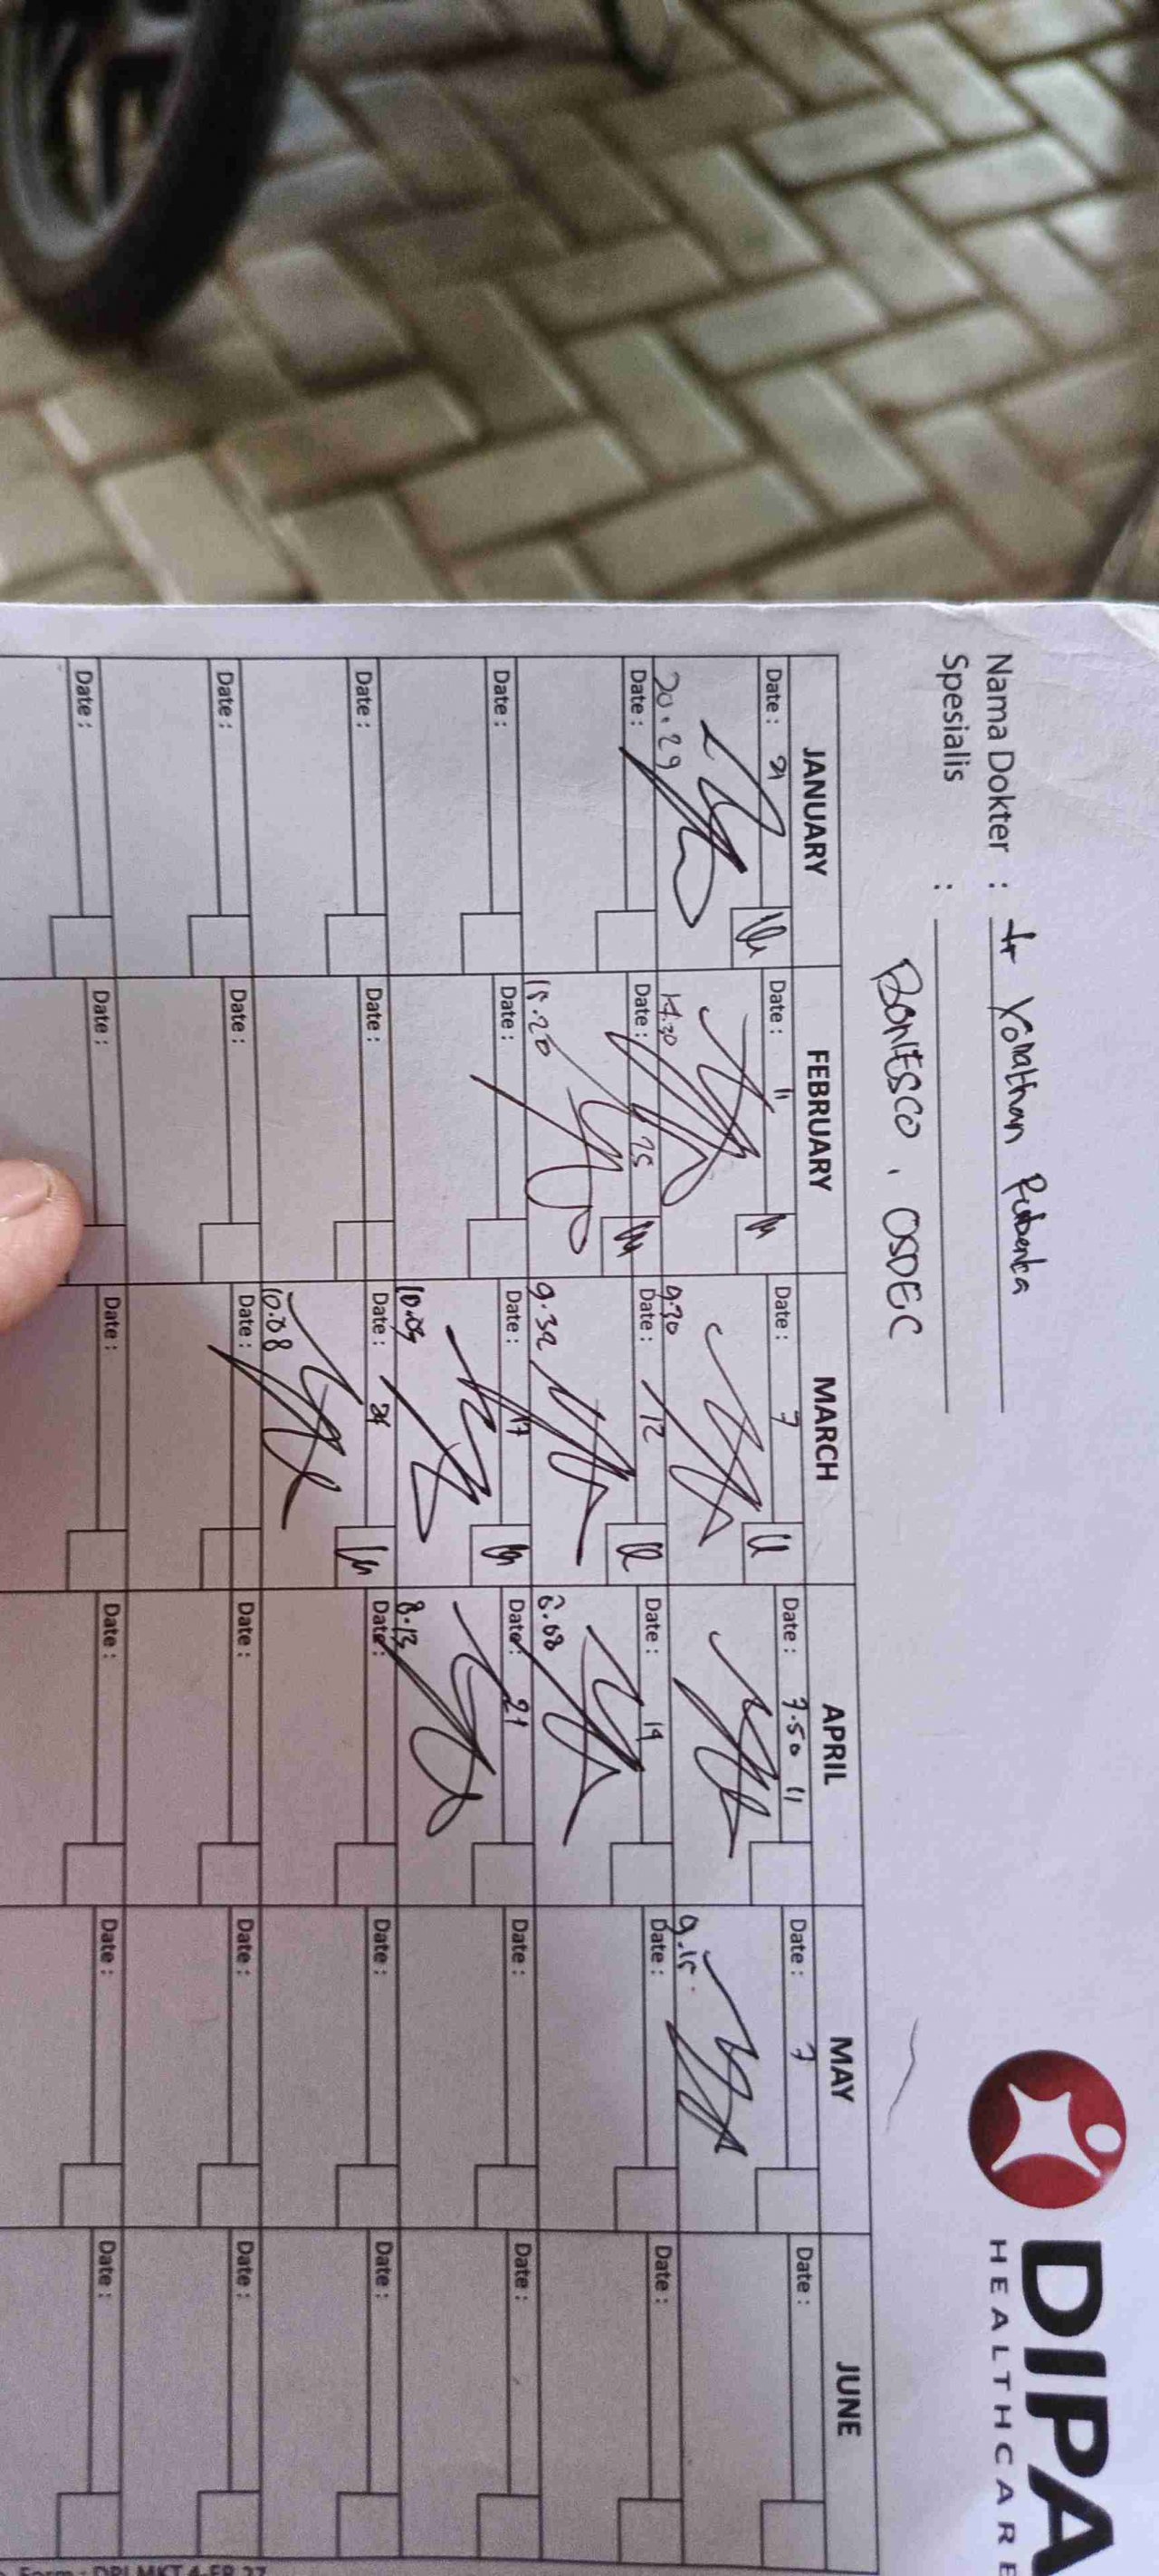 DIPA
HEALTHCARE
Nama Dokter : dr Yonathan
Spesialis :
BONESCO , OSDEC
JANUARY FEBRUARY MARCH APRIL MAY JUNE
Date : 21 Date : 11 Date : 7 Date : 7.50 11 Date : 7 Date :
20.29 14.30 9.30 9.15
Date : Date : 25 Date : 12 Date : 19 Date : Date :
15.20 9.32 8.08
Date : Date : Date : 17 Date : 21 Date : Date :
10.09 8.13
Date : Date : Date : Date : Date : Date :
10.08
Date : Date : Date : Date : Date : Date :
Date : Date : Date : Date : Date : Date :